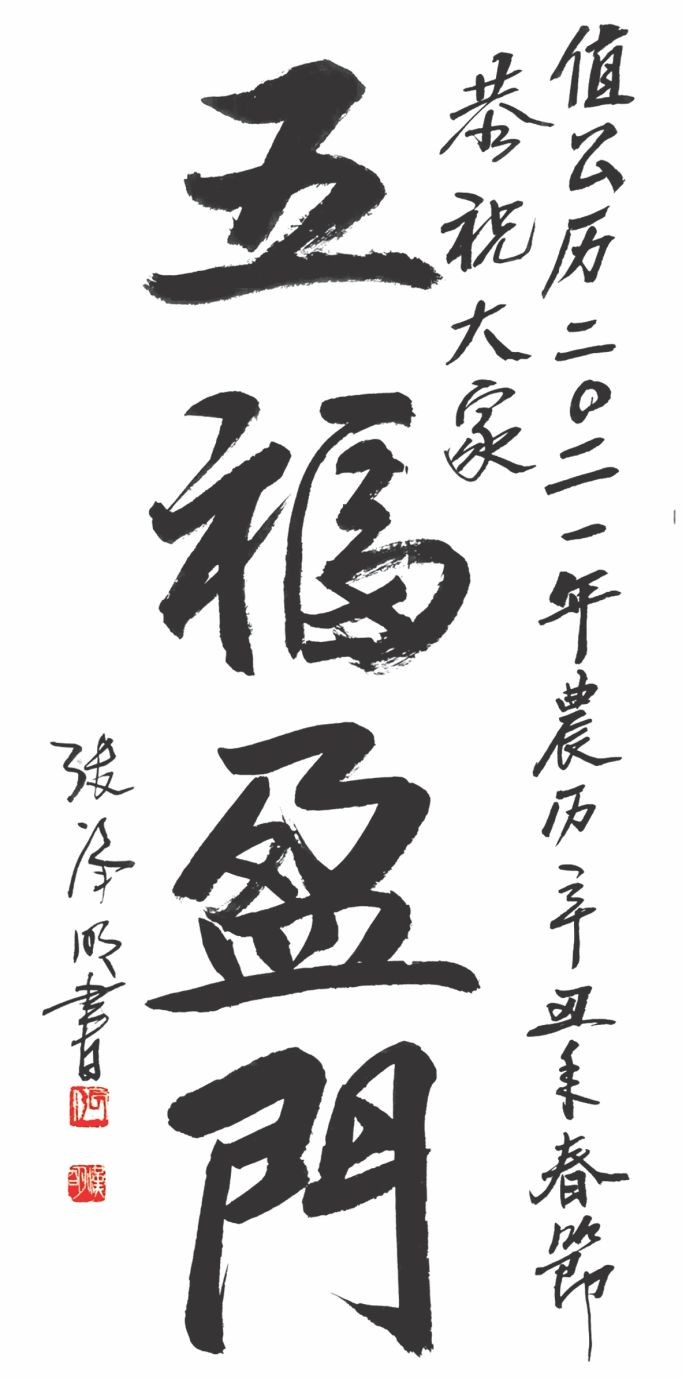 值公历二〇二一年農历辛丑年春節
恭祝大家
五福盈門
张泽明書